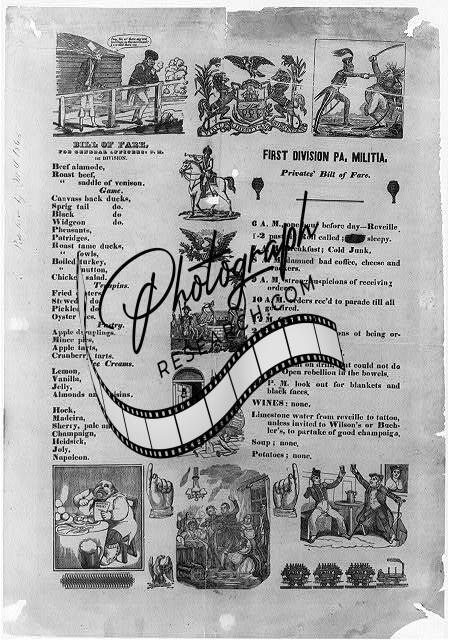 BILL OF FARE,
FOR GENERAL OFFICERS: P. M.
1st DIVISION.
Beef alamode,
Roast beef,
" saddle of venison.
Game.
Canvass back ducks,
Sprig tail do.
Black do
Widgeon do.
Pheasants,
Patridges.
Roast tame ducks,
" fowls,
Boiled turkey,
" mutton,
Chicken salad.
Terrapins.
Fried oysters
Stewed do
Pickled do
Oyster pies.
Pastry.
Apple dumplings.
Mince pies,
Apple tarts,
Cranberry tarts.
Ice Creams.
Lemon,
Vanilla,
Jelly,
Almonds and raisins.
Hock,
Madeira,
Sherry, pale and
Champaign,
Heidsick,
Joly,
Napoleon.
FIRST DIVISION PA. MILITIA.
Privates' Bill of Fare.
6 A. M. one hour before day—Reveille
1-2 past roll called ; sleepy.
breakfast; Cold Junk,
damned bad coffee, cheese and
crackers.
9 A. M. strong suspicions of receiving
orders.
10 A. M. orders rec'd to parade till all
got tired.
of being or-
on drill, but could not do
Open rebellion in the bowels.
P. M. look out for blankets and
black faces.
WINES: none.
Limestone water from reveille to tattoo,
unless invited to Wilson's or Bueh-
ler's, to partake of good champaign,
Soup ; none.
Potatoes ; none.
Photograph
RESEARCH.COM